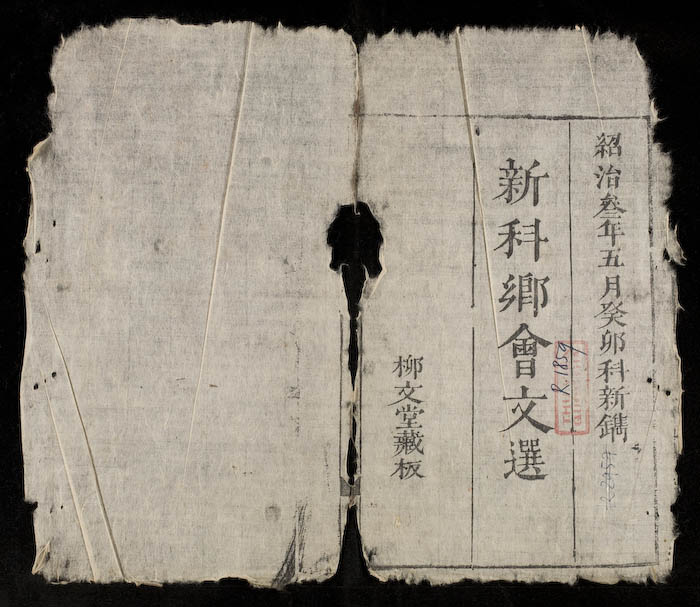 紹治叁年五月癸卯科新鐫
新科鄉會文選
柳文堂藏板
R.1859